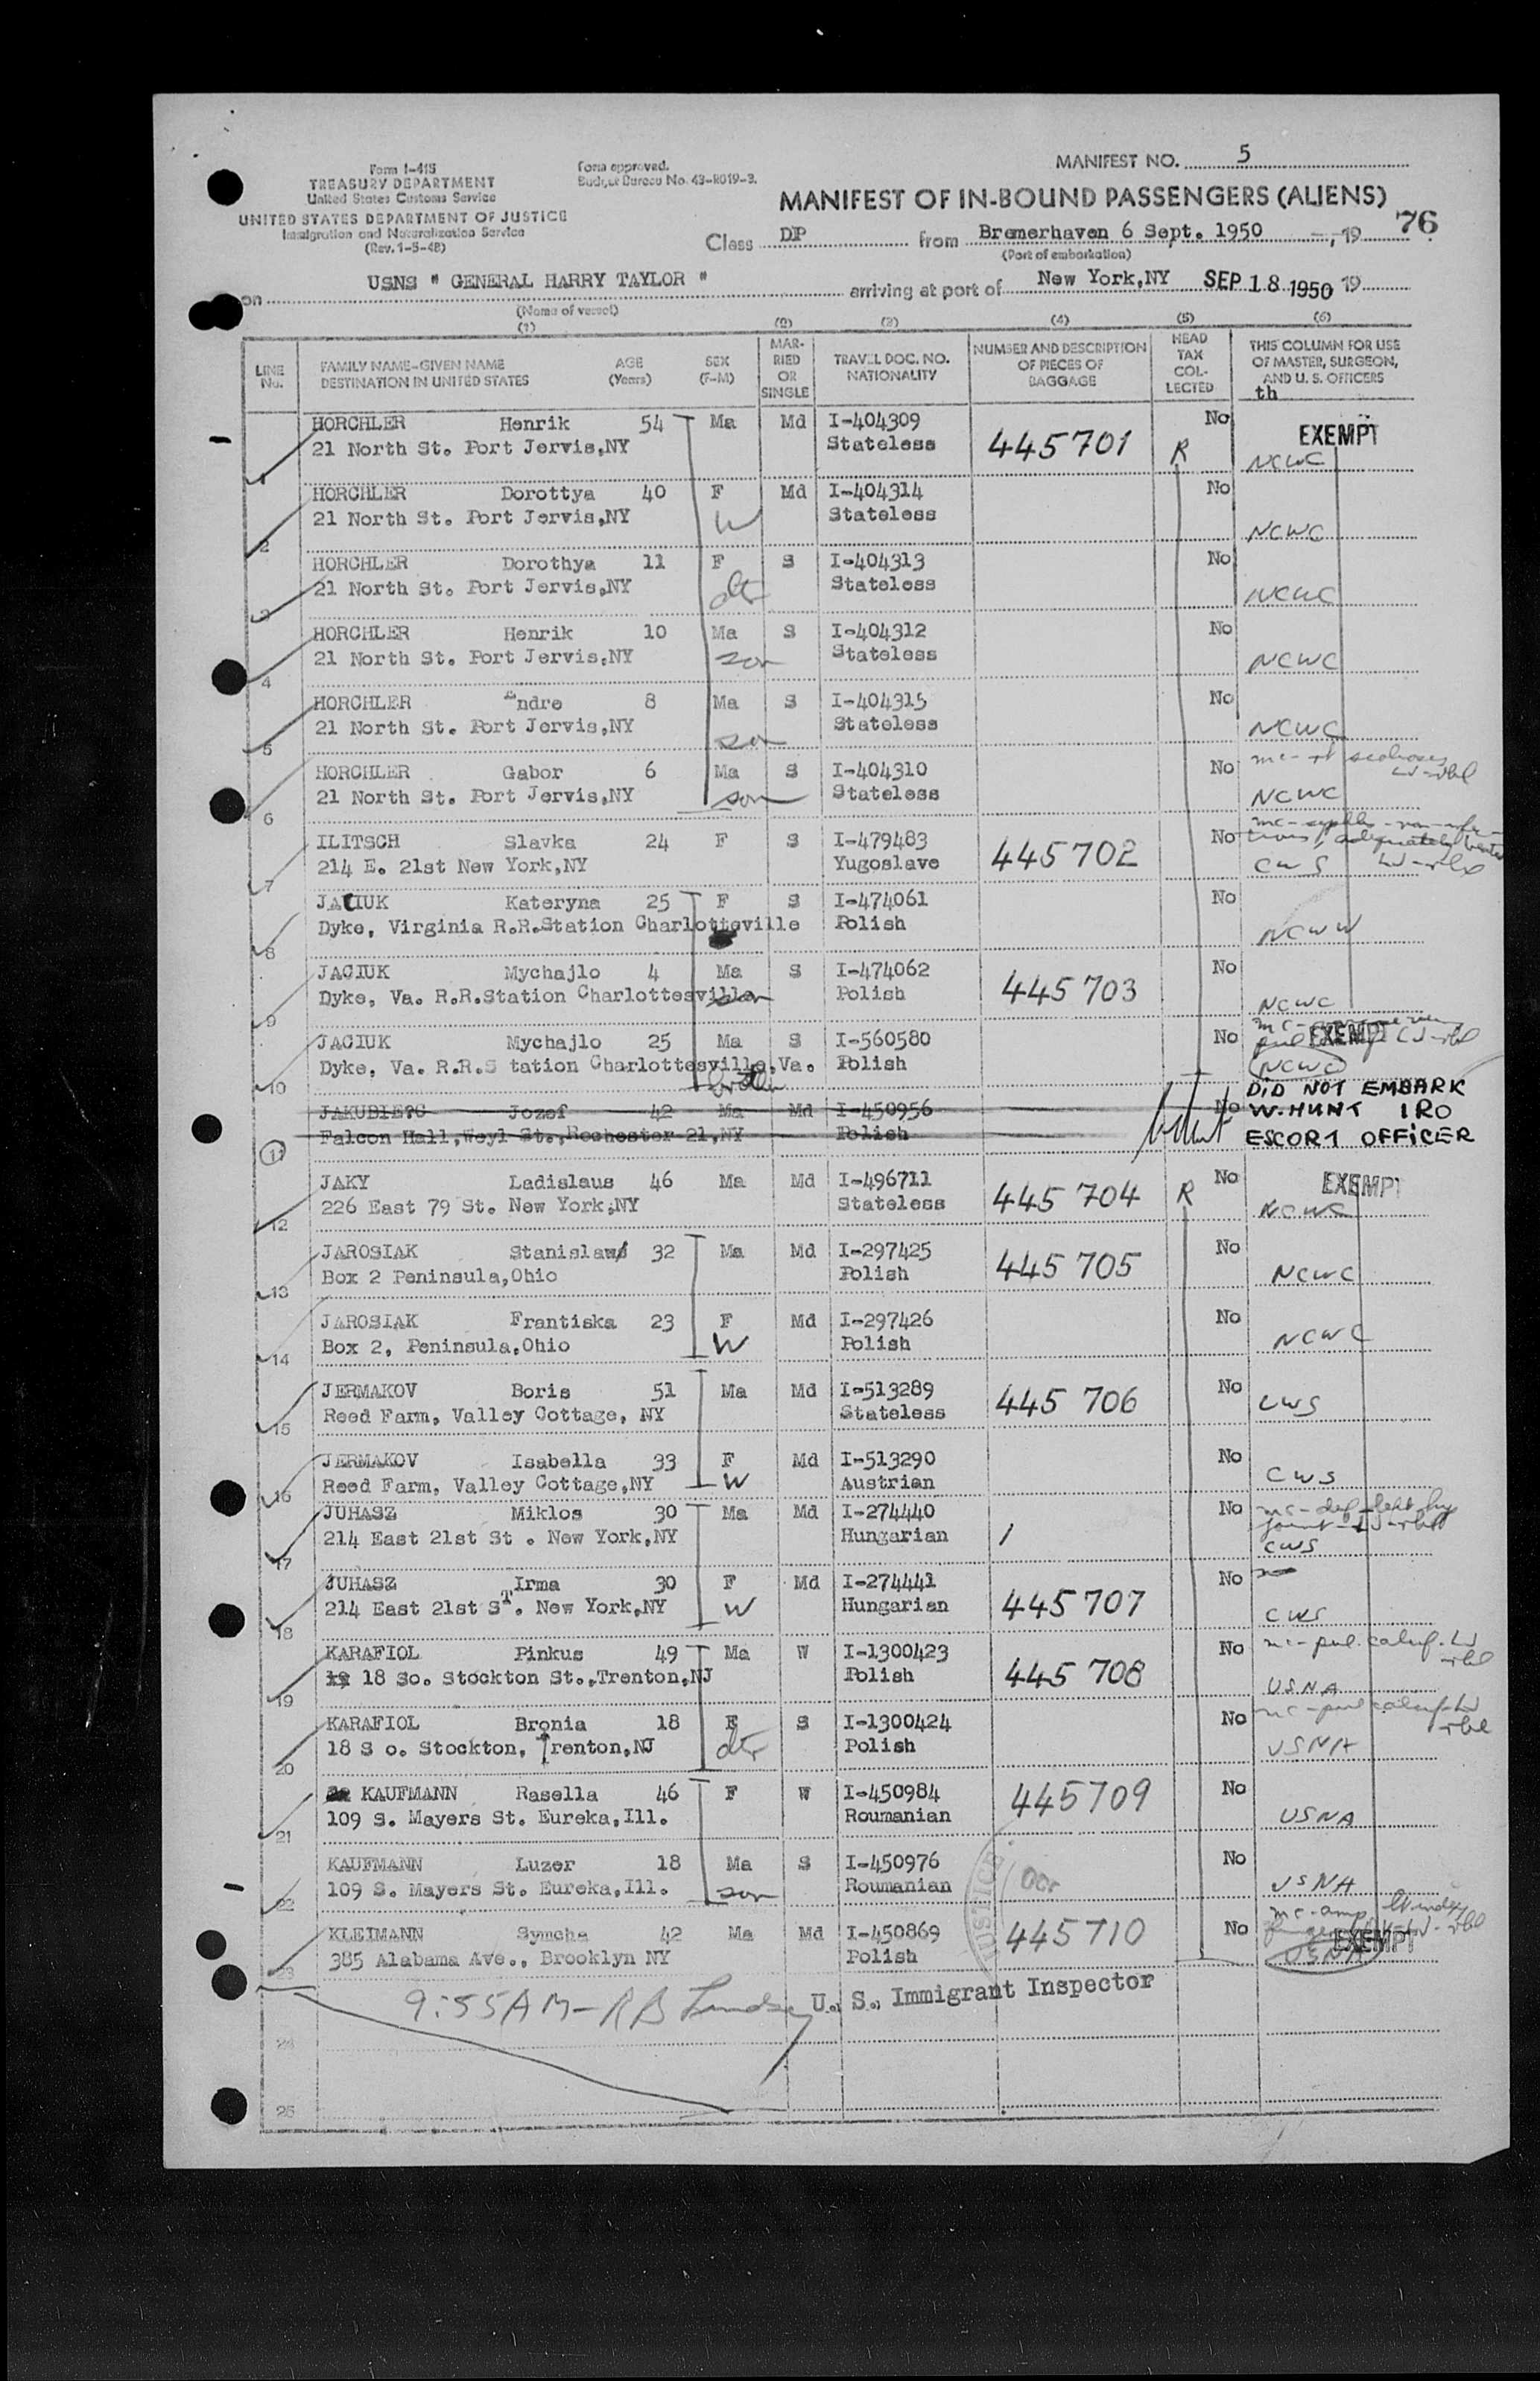 Form I-415
TREASURY DEPARTMENT
United States Customs Service
UNITED STATES DEPARTMENT OF JUSTICE
Immigration and Naturalization Service
(Rev. 1-5-48)
Form approved.
Budget Bureau No. 43-R019-3.
MANIFEST NO. 5
MANIFEST OF IN-BOUND PASSENGERS (ALIENS)
76
Class DP from Bremerhaven 6 Sept. 1950, 19
(Port of embarkation)
on USNS " GENERAL HARRY TAYLOR " arriving at port of New York,NY SEP 18 1950 19
(Name of vessel)
(1) (2) (3) (4) (5) (6)
LINE No. FAMILY NAME-GIVEN NAME DESTINATION IN UNITED STATES AGE (Years) SEX (F-M) MARRIED OR SINGLE TRAVEL DOC. NO. NATIONALITY NUMBER AND DESCRIPTION OF PIECES OF BAGGAGE HEAD TAX COLLECTED THIS COLUMN FOR USE OF MASTER, SURGEON, AND U. S. OFFICERS
th
HORCHLER Henrik 54 Ma Md I-404309 No EXEMPT
1 21 North St. Port Jervis,NY Stateless 445701 R NCWC
HORCHLER Dorottya 40 F Md I-404314 No
2 21 North St. Port Jervis,NY W Stateless NCWC
HORCHLER Dorothya 11 F S I-404313 No
3 21 North St. Port Jervis,NY dtr Stateless NCWC
HORCHLER Henrik 10 Ma S I-404312 No
4 21 North St. Port Jervis,NY son Stateless NCWC
HORCHLER Endre 8 Ma S I-404315 No
5 21 North St. Port Jervis,NY son Stateless NCWC
HORCHLER Gabor 6 Ma S I-404310 No mc-
6 21 North St. Port Jervis,NY son Stateless NCWC
ILITSCH Slavka 24 F S I-479483 No
7 214 E. 21st New York,NY Yugoslave 445702 CWS
JACIUK Kateryna 25 F S I-474061 No
8 Dyke, Virginia R.R.Station Charlotteville Polish NCWW
JACIUK Mychajlo 4 Ma S I-474062 No
9 Dyke, Va. R.R.Station Charlottesville son Polish 445703 NCWC
JACIUK Mychajlo 25 Ma S I-560580 No EXEMPT
10 Dyke, Va. R.R.S tation Charlottesville,Va. brother Polish NCWC
JAKUBIEC Jozef 42 Ma Md I-450956 No DID NOT EMBARK
11 Falcon Hall,Weyl St.,Rochester 21,NY Polish W. HUNT IRO
ESCORT OFFICER
JAKY Ladislaus 46 Ma Md I-496711 No EXEMPT
12 226 East 79 St. New York,NY Stateless 445704 R NCWC
JAROSIAK Stanislaws 32 Ma Md I-297425 No
13 Box 2 Peninsula,Ohio Polish 445705 NCWC
JAROSIAK Frantiska 23 F Md I-297426 No
14 Box 2, Peninsula,Ohio W Polish NCWC
JERMAKOV Boris 51 Ma Md I-513289 No
15 Reed Farm, Valley Cottage, NY Stateless 445706 CWS
JERMAKOV Isabella 33 F Md I-513290 No
16 Reed Farm, Valley Cottage,NY W Austrian CWS
JUHASZ Miklos 30 Ma Md I-274440 No
17 214 East 21st St . New York,NY Hungarian CWS
JUHASZ Irma 30 F Md I-274441 No
18 214 East 21st ST. New York,NY W Hungarian 445707 CWS
KARAFIOL Pinkus 49 Ma W I-1300423 No
19 18 So. Stockton St.,Trenton,NJ Polish 445708 USNA
KARAFIOL Bronia 18 F S I-1300424 No
20 18 S o. Stockton, Trenton,NJ dtr Polish USNA
KAUFMANN Rasella 46 F W I-450984 No
21 109 S. Mayers St. Eureka,Ill. Roumanian 445709 USNA
KAUFMANN Luzer 18 Ma S I-450976 No
22 109 S. Mayers St. Eureka,Ill. son Roumanian USNA
KLEIMANN Symcha 42 Ma Md I-450869 No EXEMPT
23 385 Alabama Ave., Brooklyn NY Polish 445710 USNA
9:55AM - RB U. S. Immigrant Inspector
24
25